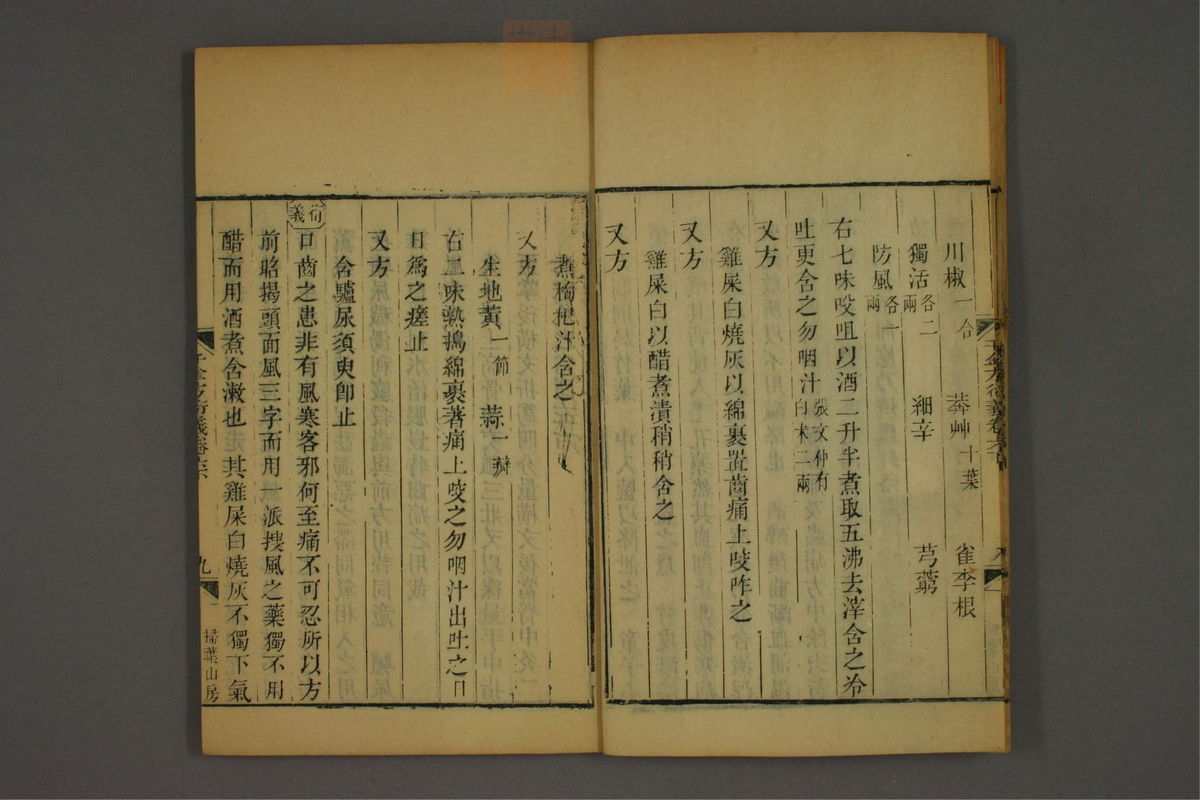 川椒一合 莽艸十葉 雀李根
獨活各二兩 細辛 芎藭
防風各一兩
右七味㕮咀以酒二升半煮取五沸去滓含之冷
吐更含之勿咽汁張文仲有白术二兩
又方
雞屎白燒灰以綿裹置齒痛上咬咋之
又方
雞屎白以醋煮漬稍稍含之
又方
煮枸杞汁含之
又方
生地黃一節 蒜一瓣
右二味熟搗綿裹著痛上咬之勿咽汁出吐之日
日為之瘥止
又方
含驢尿須臾即止
衍義
口齒之患非有風寒客邪何至痛不可忍所以方
前昭揭頭面風三字而用一派搜風之藥獨不用
醋而用酒煮含漱也 其雞屎白燒灰不獨下氣
千金方衍義卷六
九
掃葉山房